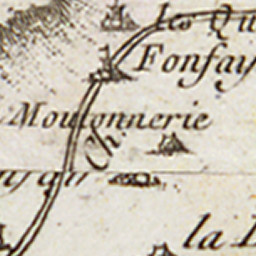 les Qu
Fonfay
Moutonnerie
Ch
la